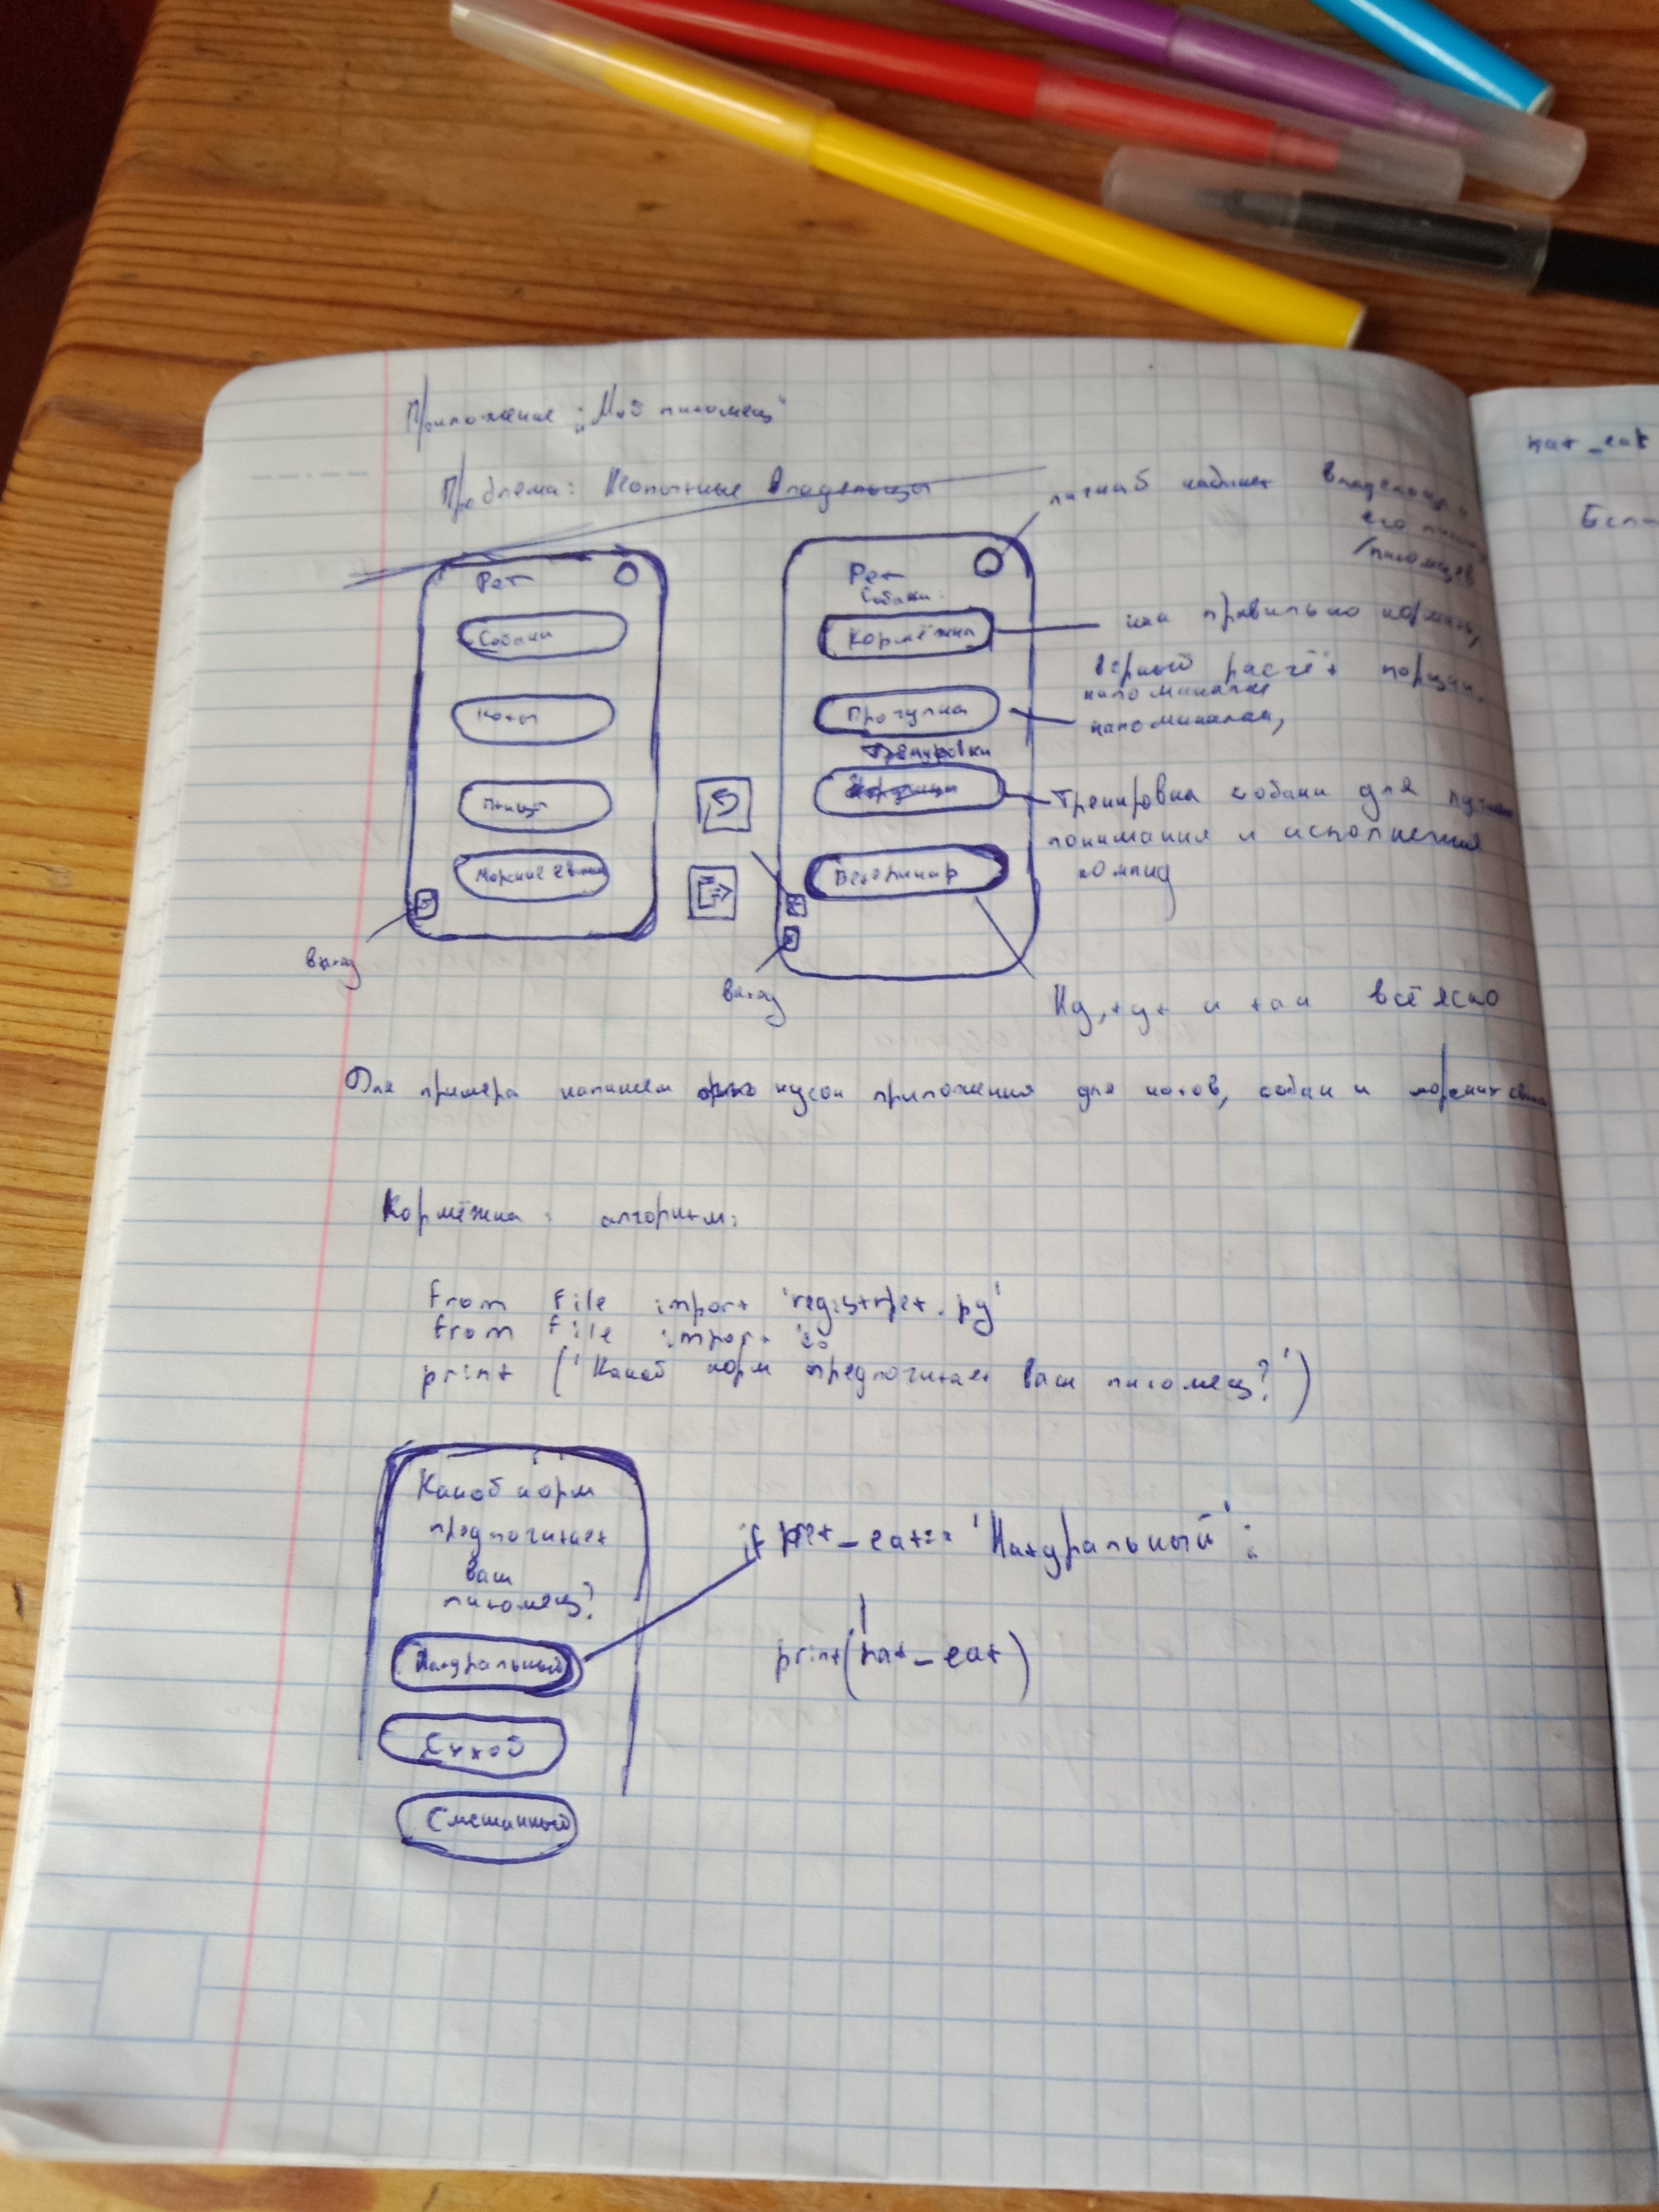 Приложение "Мой питомец"
Проблема: Неопытные владельцы
личный кабинет владельца и
его
/питомцев
Pet
Собаки
Коты
Птицы
Морские свинки
выход
Pet
Собаки:
Кормёжка
Прогулка
Тренировки
Ветеринар
выход
как правильно кормить,
верный расчёт порции,
напоминалки
напоминалки,
Тренировка собаки для лучшего
понимания и исполнения
команд
Ну, тут и так всё ясно
Для примера напишем кусок приложения для котов, собак и морских свинок
Кормёжка: алгоритм:
from file import 'registrpet.py'
from file import
print ('Какой корм предпочитает ваш питомец?')
Какой корм
предпочитает
ваш
питомец?
Натуральный
Сухой
Смешанный
if pet_eat== 'Натуральный':
print(nat_eat)
nat_eat
Если